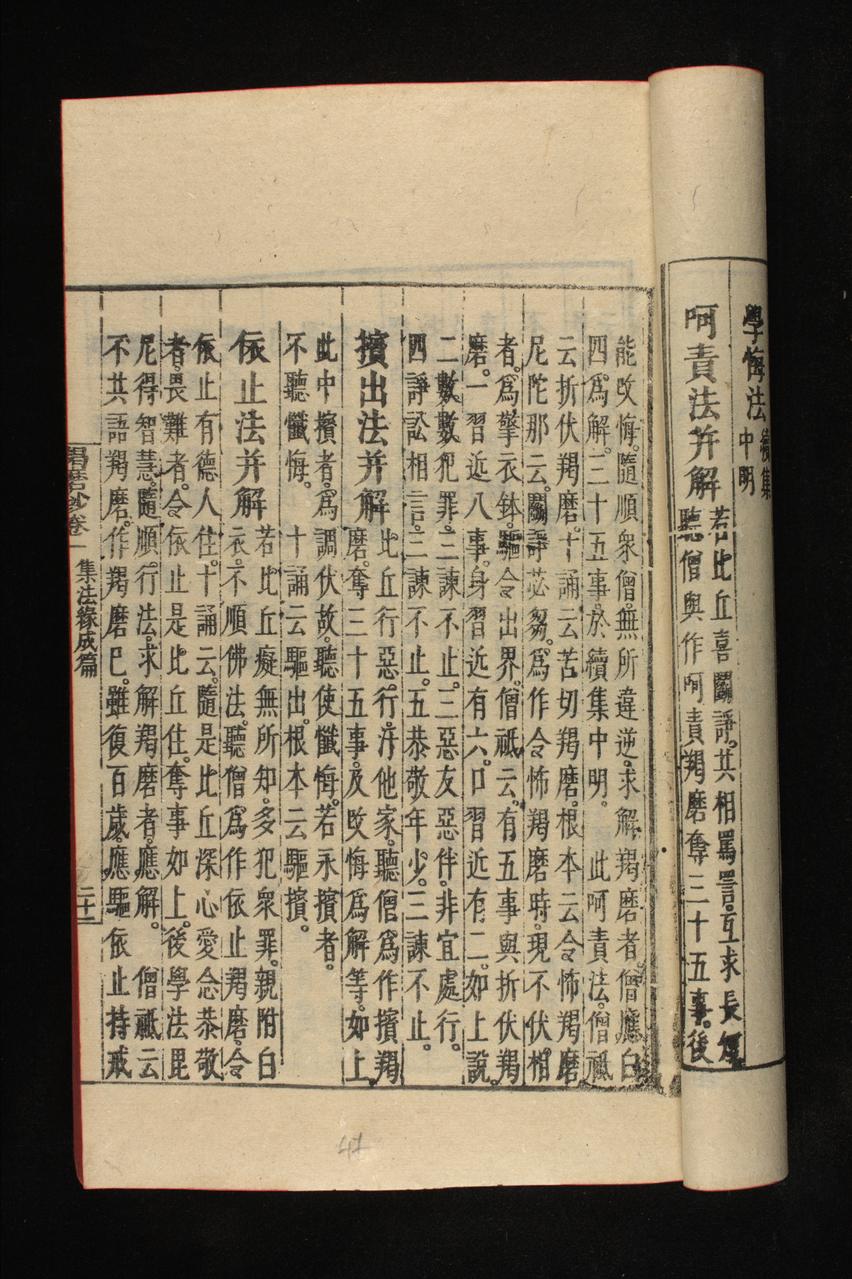 學悔法續集
中明
呵責法并解若比丘喜鬬諍。共相罵詈。互求長短
聽僧與作呵責羯磨。奪三十五事。後
能改悔。隨順眾僧。無所違逆。求解羯磨者。僧應白
四。為解。三十五事。於續集中明。 此呵責法。僧祇
云折伏羯磨。十誦云苦切羯磨。根本云令怖羯磨
尼陀那云。鬬諍苾芻。為作令怖羯磨時。現不伏相
者。為擎衣鉢。驅令出界。僧祇云。有五事與折伏羯
磨。一習近八事。身習近有六。口習近有二。如上說。
二數數犯罪。二諫不止。三惡友惡伴。非宜處行。
四諍訟相言。二諫不止。五恭敬年少。三諫不止。
擯出法并解比丘行惡行。汙他家。聽僧為作擯羯
磨。奪三十五事。及改悔為解等。如上
此中擯者。為調伏故。聽使懺悔。若永擯者。
不聽懺悔。 十誦云驅出。根本云驅擯。
依止法并解若比丘癡無所知。多犯眾罪。親附白
衣。不順佛法。聽僧為作依止羯磨。令
依止有德人住。十誦云。隨是比丘深心愛念恭敬
者。畏難者。令依止是比丘住。奪事如上。後學法毘
尼得智慧。隨順行法。求解羯磨者。應解。 僧祇云
不共語羯磨。作羯磨已。雖復百歲。應驅依止持戒
羯磨鈔卷一 集法緣成篇 二十一
41